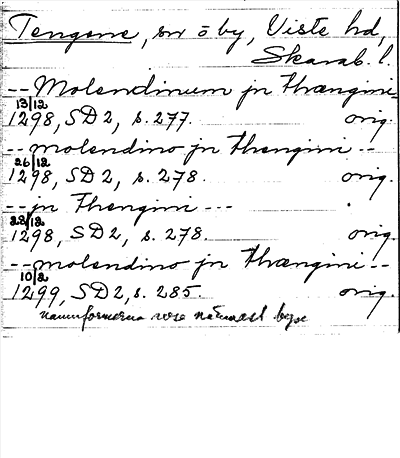 Tengene, sn o by, Viste hd,
Skarab. l.
-- Molendinum jn thængini
13/12
1298, SD2, s. 277. orig.
-- molendino jn thengini --
26/12
1298, SD2, s. 278. orig.
-- jn Thengini ---
28/12
1298, SD2, s. 278. orig.
-- molendino jn thængini --
10/2
1299, SD2, s. 285. orig.
namnformerna avse närmast byn